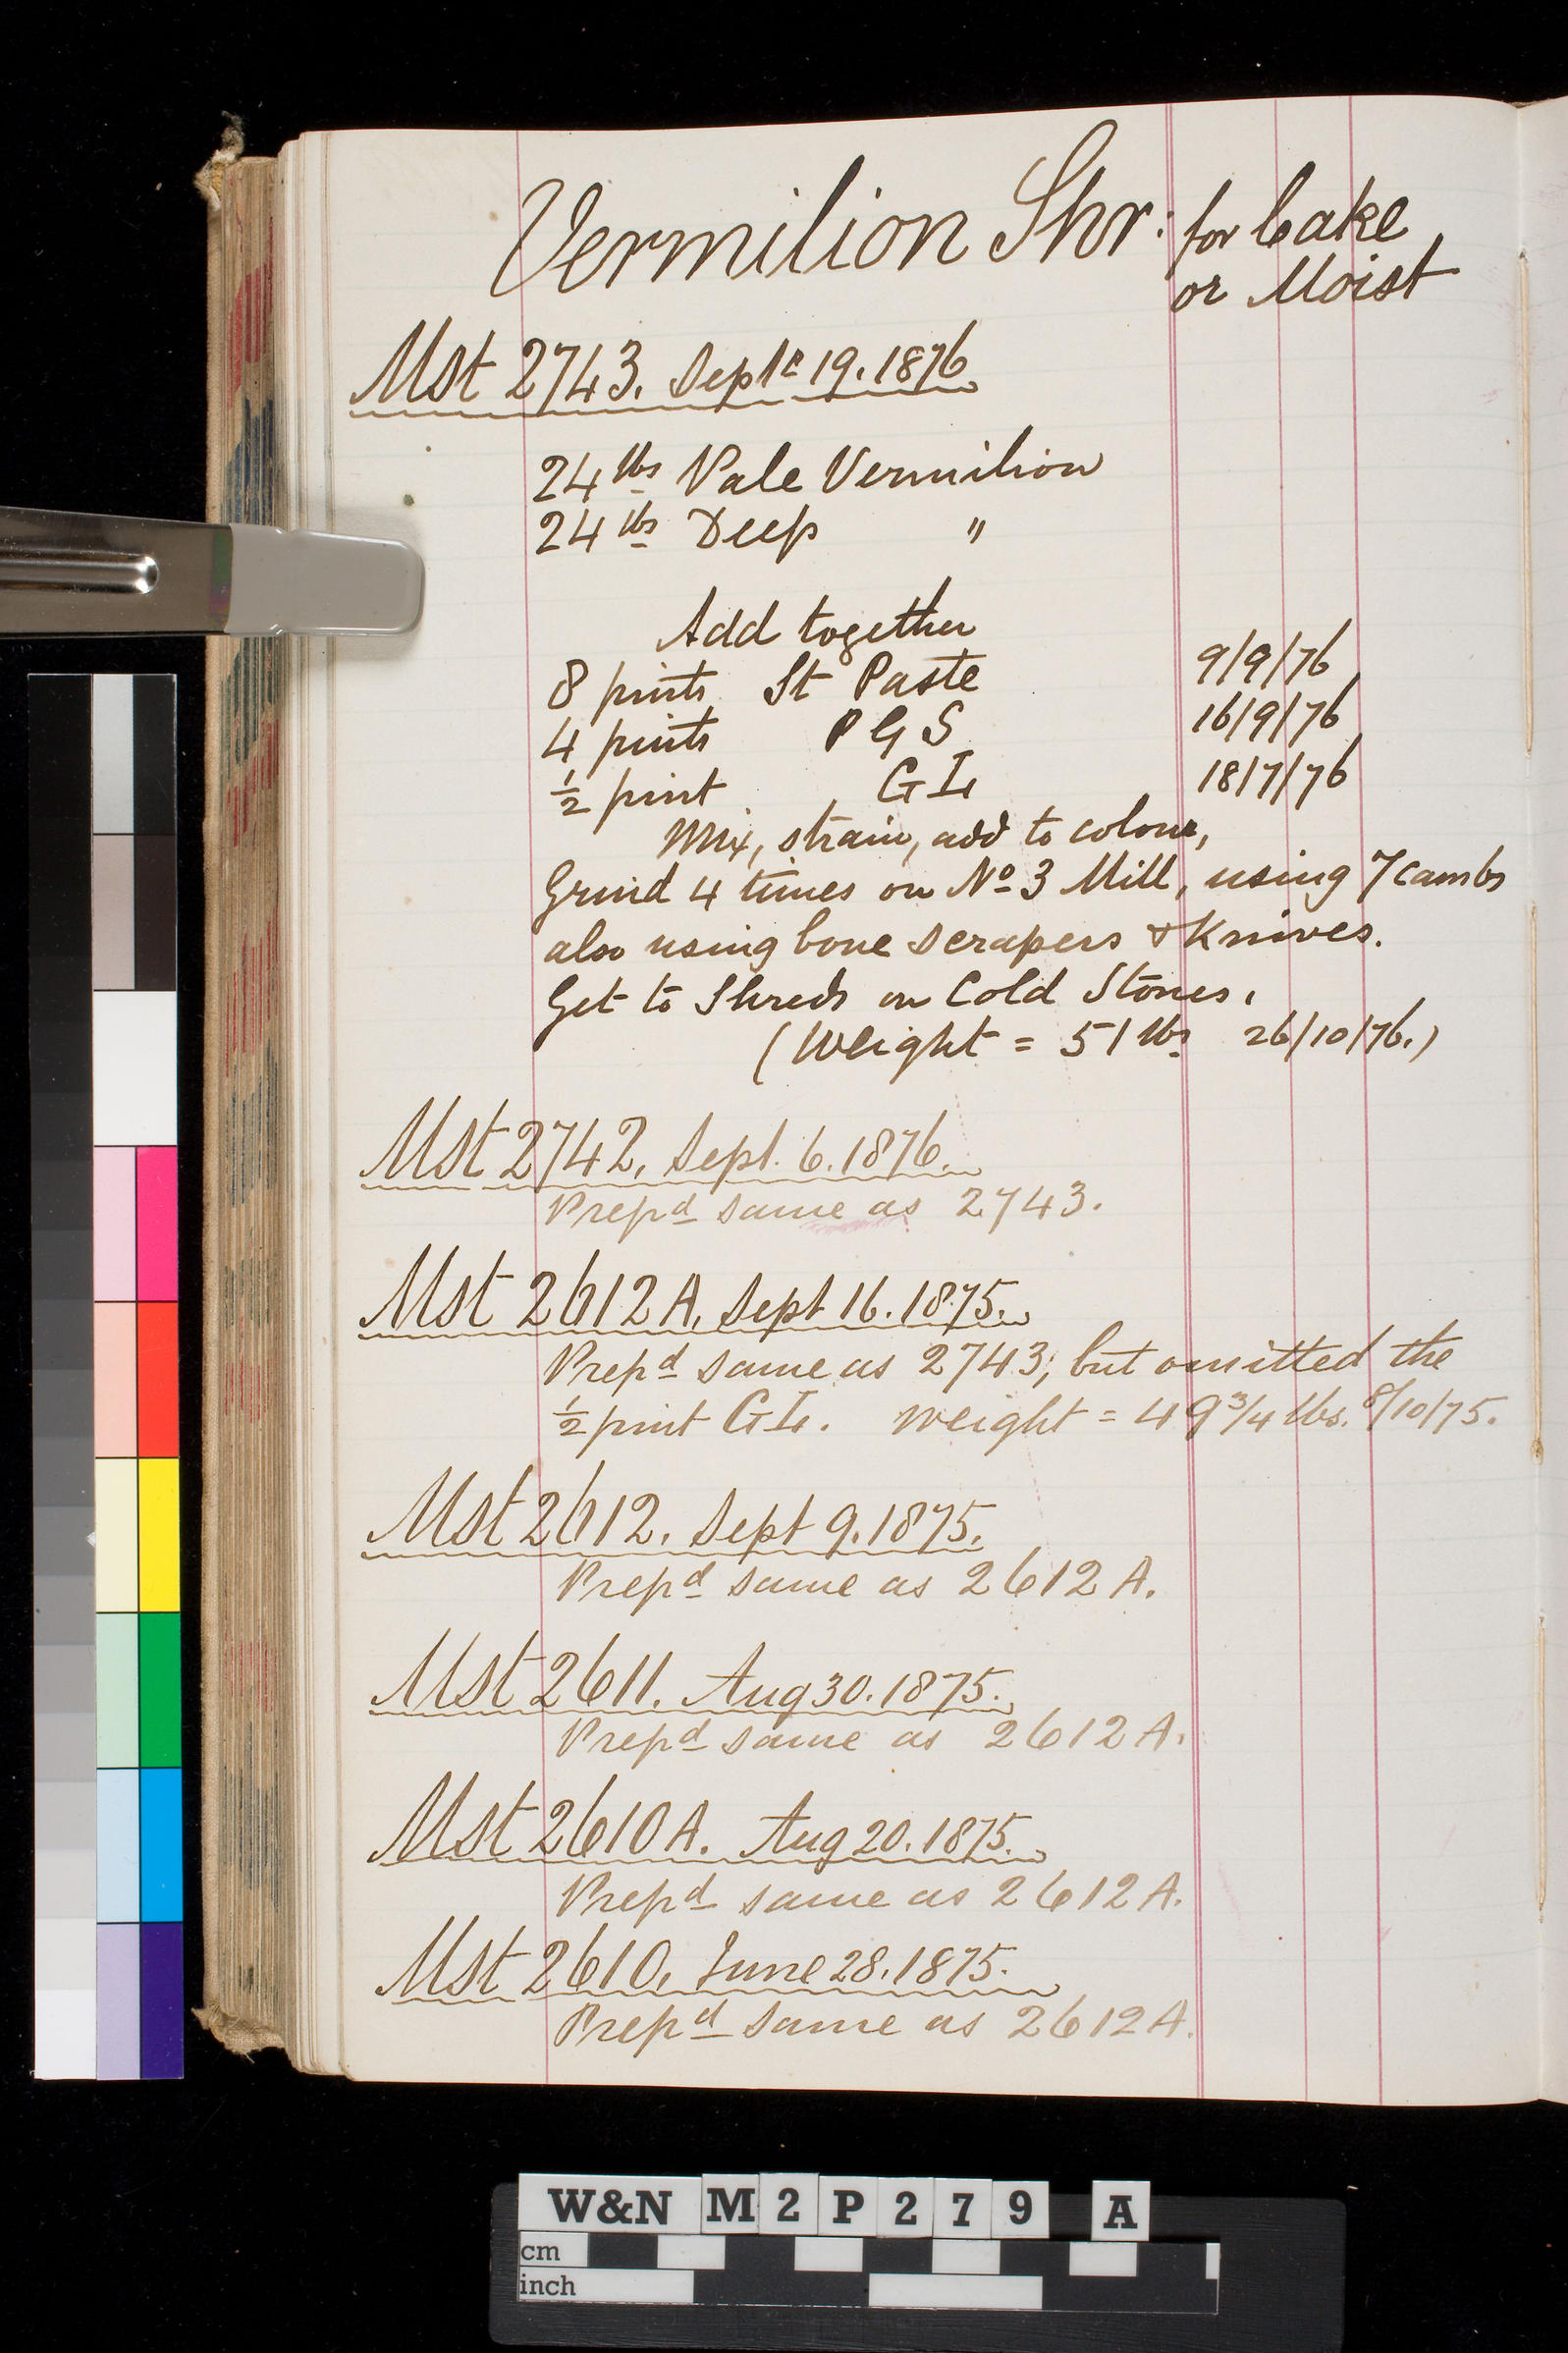 Vermilion Shr: for Cake
or Moist
Mst 2743. Septr 19. 1876
24 lbs Pale Vermilion
24 lbs Deep "
Add together
8 pints St Paste 9/9/76
4 pints P G S 16/9/76
½ pint G L 18/7/76
Mix, strain, add to colour,
Grind 4 times on No 3 Mill, using 7 cambs
also using bone scrapers & Knives.
Get to Shreds on Cold Stones.
(Weight = 51 lbs 26/10/76.)
Mst 2742. Sept. 6. 1876.
Prepd same as 2743.
Mst 2612A. Sept 16. 1875.
Prepd same as 2743; but omitted the
½ pint G L. Weight = 49 3/4 lbs. 8/10/75.
Mst 2612. Sept 9. 1875.
Prepd same as 2612 A.
Mst 2611. Aug 30. 1875.
Prepd same as 2612 A.
Mst 2610 A. Aug 20. 1875.
Prepd same as 2612 A.
Mst 2610. June 28. 1875.
Prepd same as 2612 A.
W&N M2P279 A
cm
inch